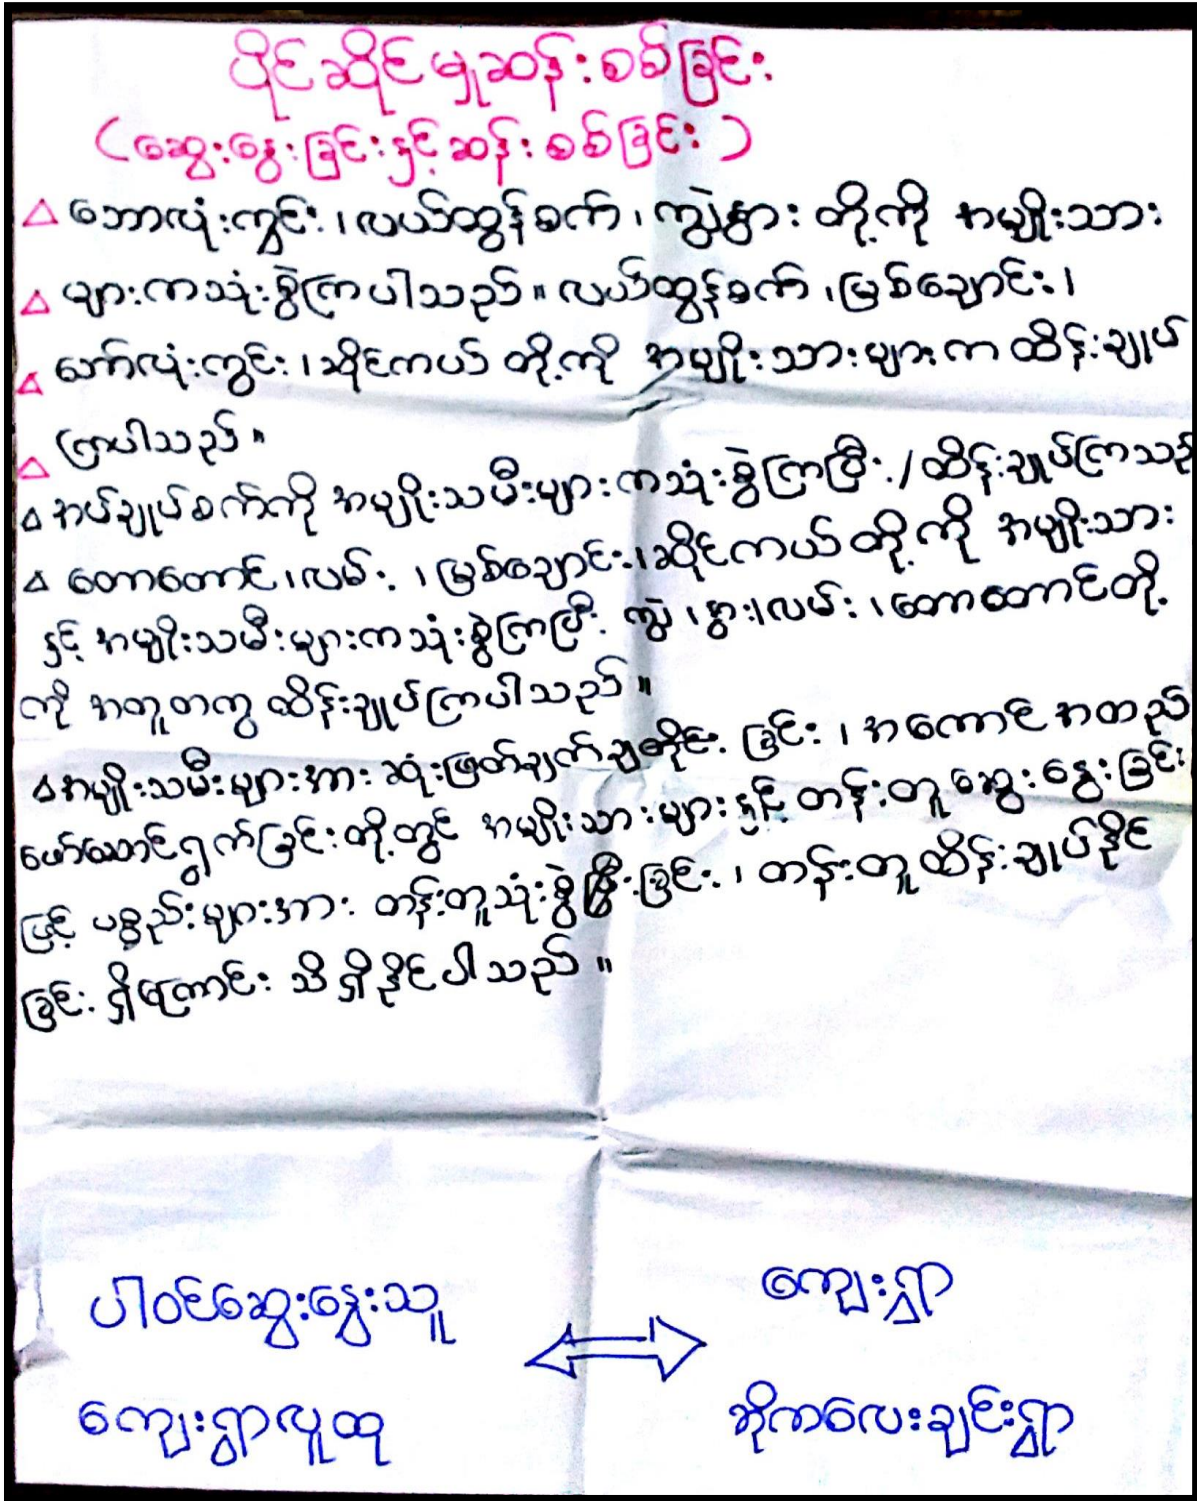 ပိုင်ဆိုင်မှုဆန်းစစ်ခြင်း
(ဆွေးနွေးခြင်းနှင့်ဆန်းစစ်ခြင်း)
△ ဘောလုံးကွင်း၊ လယ်ထွန်စက်၊ ကျွဲနွား တို့ကို အမျိုးသား
△ များကသုံးစွဲကြပါသည်။ လယ်ထွန်စက်၊ မြစ်ချောင်း၊
△ ဘော်လုံးကွင်း၊ ဆိုင်ကယ် တို့ကို အမျိုးသားများက ထိန်းချုပ်
△ ကြပါသည်။
△ အပ်ချုပ်စက်ကို အမျိုးသမီးများကသုံးစွဲကြပြီး/ထိန်းချုပ်ကြသည်
△ တောတောင်၊ လမ်း၊ မြစ်ချောင်း၊ ဆိုင်ကယ်တို့ကို အမျိုးသား
နှင့် အမျိုးသမီးများကသုံးစွဲကြပြီး ကျွဲ၊ နွား၊ လမ်း၊ တောတောင်တို့
ကို အတူတကွ ထိန်းချုပ်ကြပါသည်။
△ အမျိုးသမီးများအား ဆုံးဖြတ်ချက်ချတိုင်း ခြင်း၊ အကောင်အထည်
ဖော်ဆောင်ရွက်ခြင်းတို့တွင် အမျိုးသားများနှင့် တန်းတူဆွေးနွေးခြင်း
ဖြင့် ပစ္စည်းများအား တန်းတူသုံးစွဲပြီးခြင်း၊ တန်းတူထိန်းချုပ်နိုင်
ခြင်း ရှိကြောင်း သိရှိနိုင်ပါသည်။
ပါဝင်ဆွေးနွေးသူ ကျေးရွာ
ကျေးရွာလူထု ဘိုကလေးချင်းရွာ